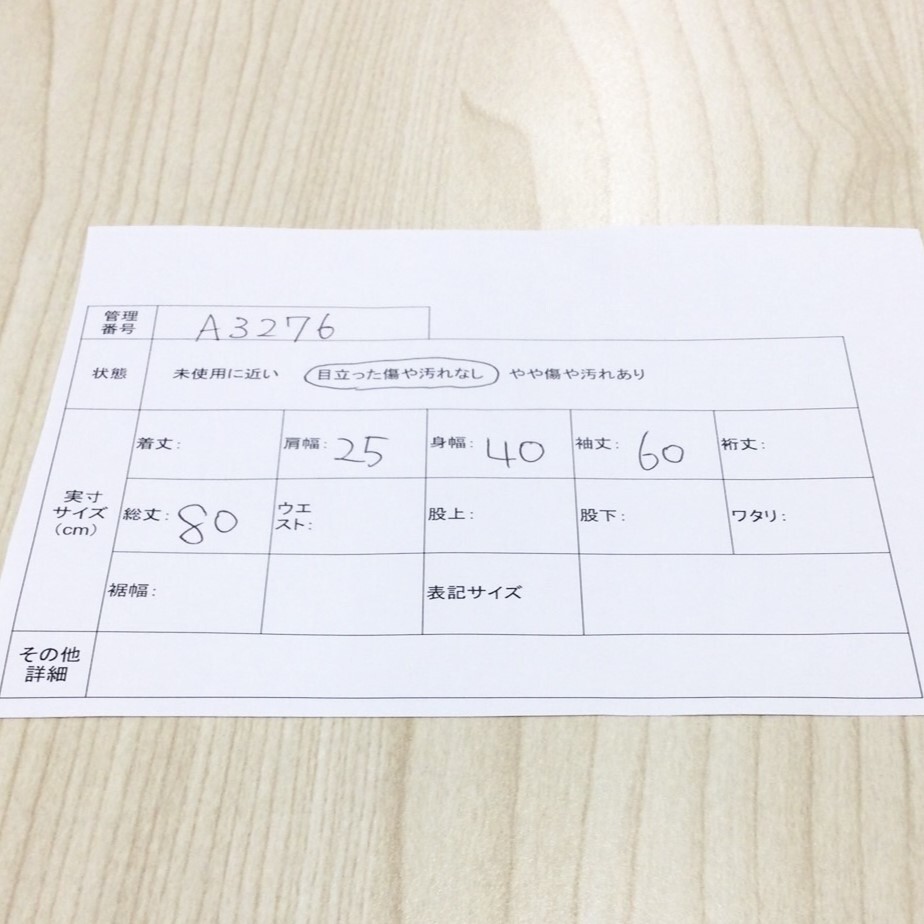 管理番号 A3276
状態 未使用に近い 目立った傷や汚れなし やや傷や汚れあり
実寸サイズ(cm)
着丈: 肩幅: 25 身幅: 40 袖丈: 60 裄丈:
総丈: 80 ウエスト: 股上: 股下: ワタリ:
裾幅: 表記サイズ
その他詳細